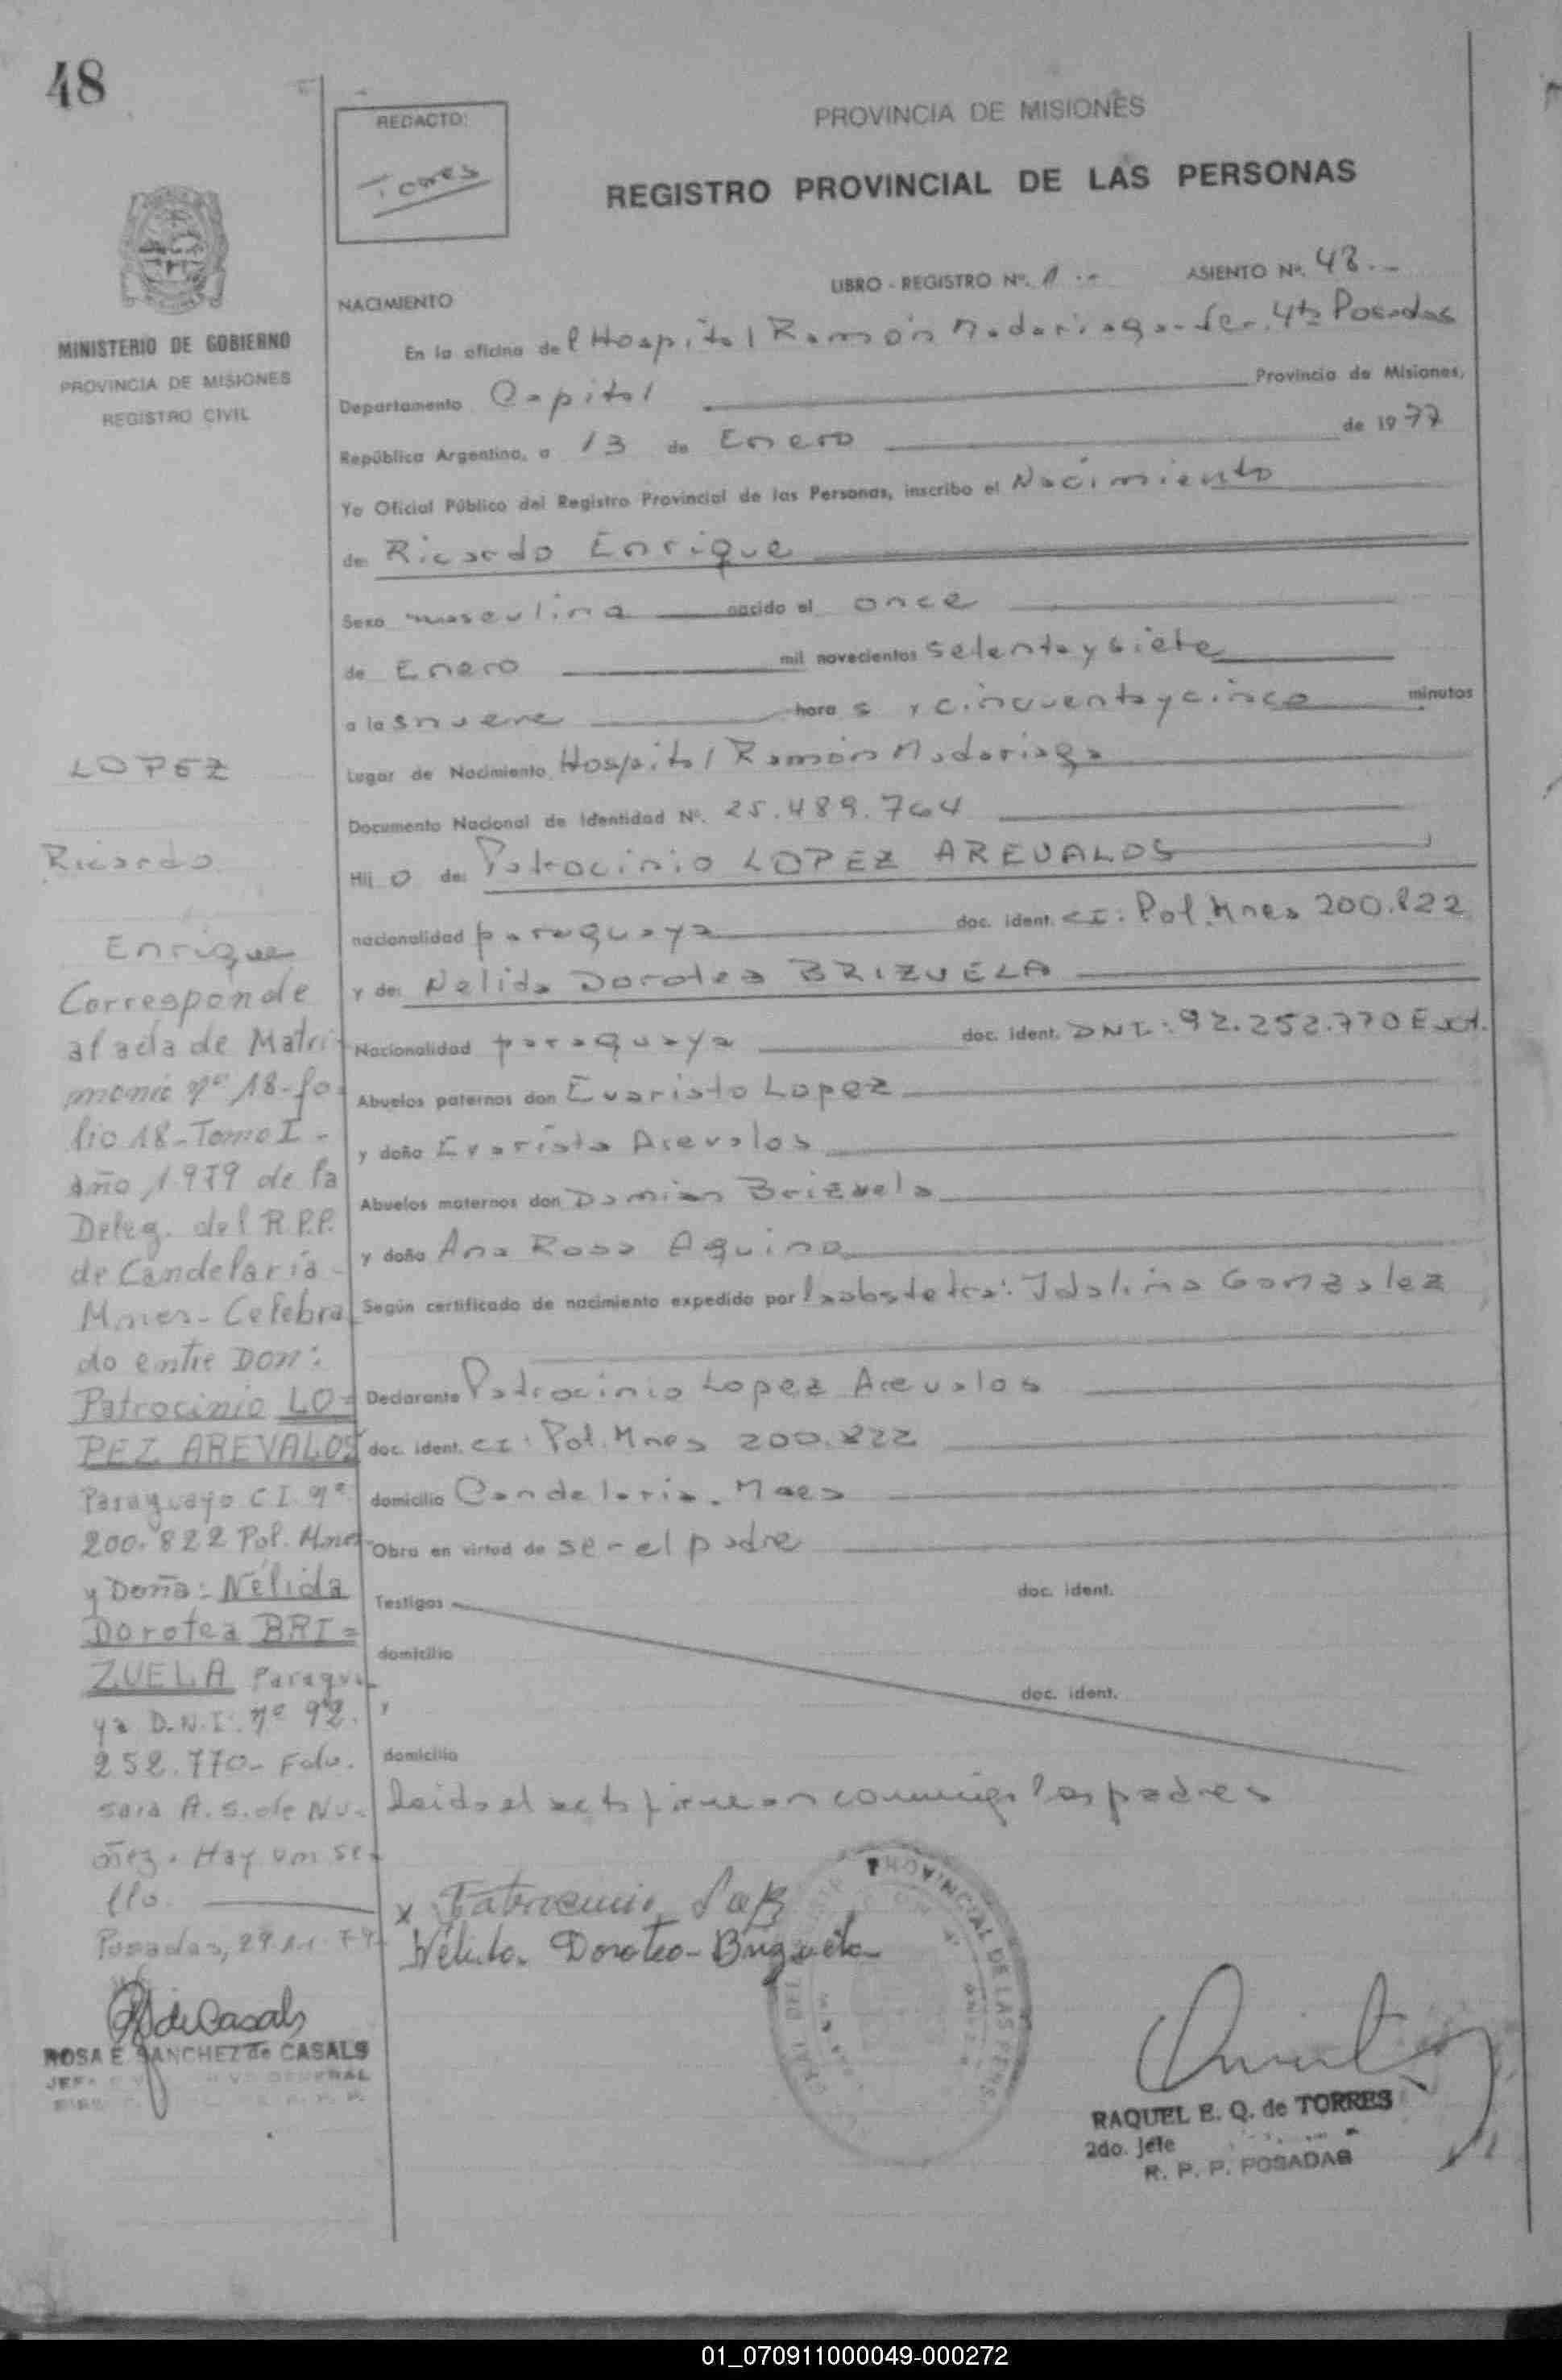 48
REDACTO:
Torres
PROVINCIA DE MISIONES
REGISTRO PROVINCIAL DE LAS PERSONAS
MINISTERIO DE GOBIERNO
PROVINCIA DE MISIONES
REGISTRO CIVIL
LIBRO - REGISTRO Nº. 1.- ASIENTO Nº. 48.-
NACIMIENTO
En la oficina del Hospital Ramón Madariaga - Sec. 4ta Posadas
Departamento Capital Provincia de Misiones,
República Argentina, a 13 de Enero de 1977
Yo Oficial Público del Registro Provincial de las Personas, inscribo el Nacimiento
de: Ricardo Enrique
Sexo masculino nacido el once
de Enero mil novecientos setenta y siete
a las nueve hora s y cincuenta y cinco minutos
Lugar de Nacimiento Hospital Ramón Madariaga
Documento Nacional de Identidad Nº. 25.489.764
Hij o de: Patrocinio LOPEZ AREVALOS
nacionalidad paraguaya doc. ident. CI: Pol. Mnes 200.822
y de: Nelida Dorotea BRIZUELA
Nacionalidad paraguaya doc. ident. DNI: 92.252.770 Ext.
Abuelos paternos don Evaristo Lopez
y doña Evarista Arevalos
Abuelos maternos don Damian Brizuela
y doña Ana Rosa Aquino
Según certificado de nacimiento expedido por la obstetra: Idalina Gonzalez
Declarante Patrocinio Lopez Arevalos
doc. ident. CI: Pol. Mnes 200.822
domicilio Candelaria. Mnes
Obra en virtud de ser el padre
Testigos doc. ident.
domicilio
doc. ident.
domicilio
Leida el acta firman conmigo los padres
x Patrocinio Lop
Nélida Dorotea Brizuela
PROVINCIAL DE LAS PERS
RAQUEL E. Q. de TORRES
2do. Jefe
R. P. P. POSADAS
LOPEZ
Ricardo
Enrique
Corresponde
al acta de Matri-
monio nº 18-fo-
lio 18-Tomo I-
año 1979 de la
Deleg. del R.P.P.
de Candelaria-
Mnes- Celebra
do entre DON:
Patrocinio LO=
PEZ AREVALOS
Paraguayo C I. nº
200.822 Pol. Mnes
y Doña: Nélida
Dorotea BRI=
ZUELA Paragua
ya D.N.I. nº 92.
252.770- Fdo.
Sara A. S. de Nu-
ñez. Hay un se-
llo.
Posadas, 29.11.79
R S de Casals
ROSA E SANCHEZ de CASALS
01_070911000049-000272